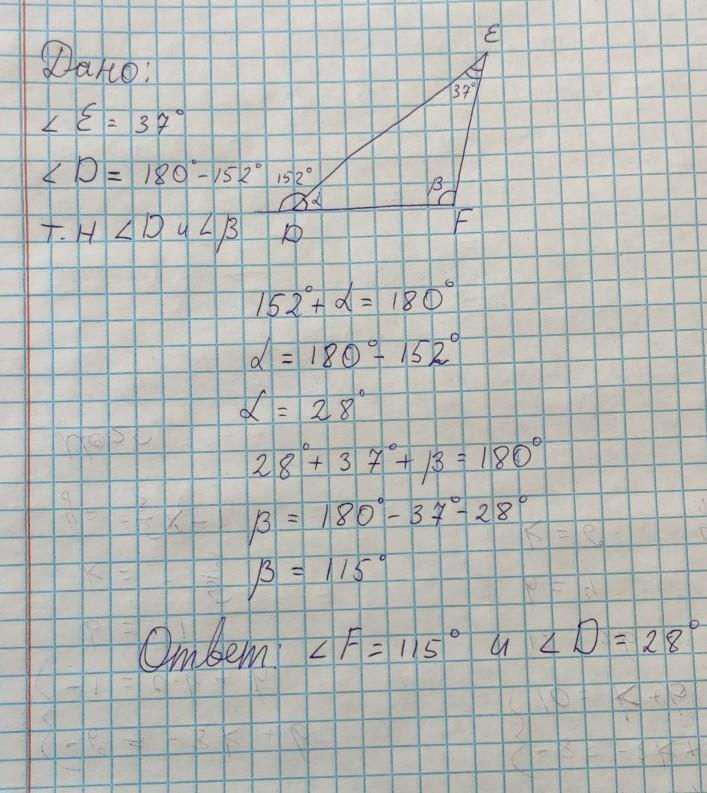 Дано:
∠E = 37°
∠D = 180° - 152°
т.н ∠D и ∠β
E
37°
152°
α
β
D
F
152° + α = 180°
α = 180° - 152°
α = 28°
28° + 37° + β = 180°
β = 180° - 37° - 28°
β = 115°
Ответ: ∠F = 115° и ∠D = 28°